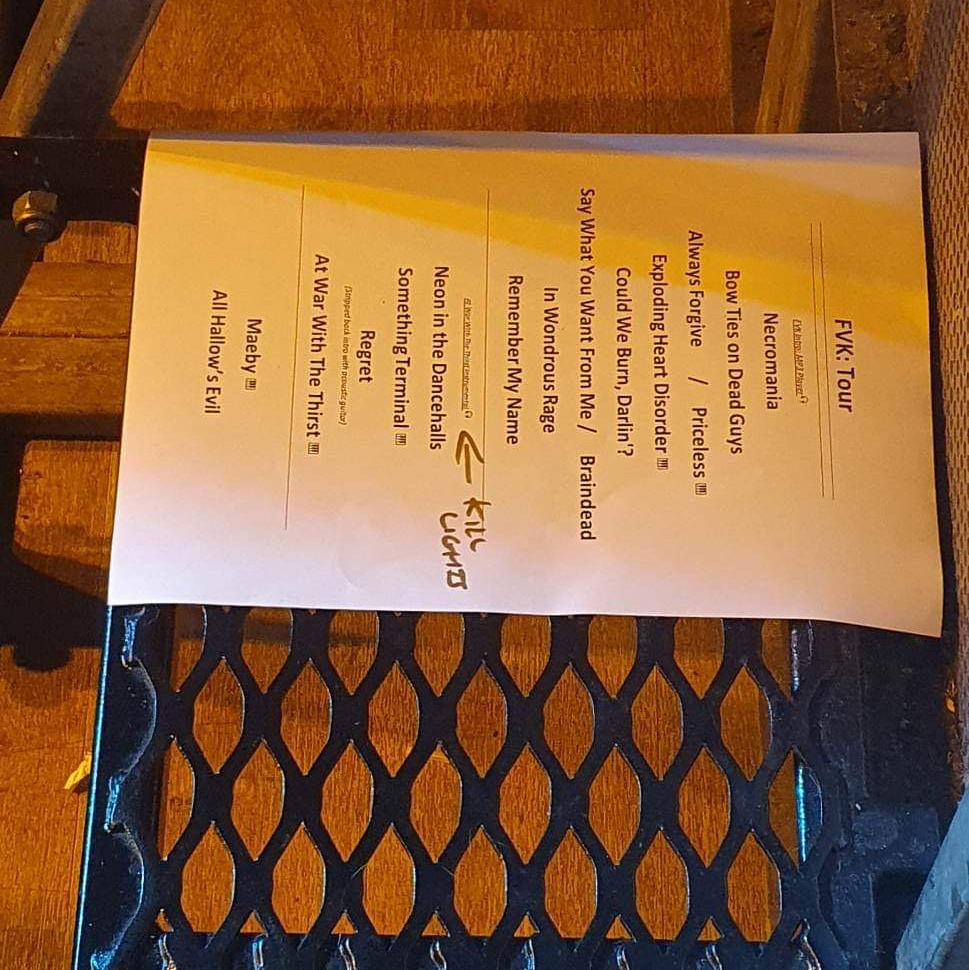 FVK: Tour
FVK Intro: MP3 Player🎧
Necromania
Bow Ties on Dead Guys
Always Forgive / Priceless 🎹
Exploding Heart Disorder 🎹
Could We Burn, Darlin'?
Say What You Want From Me / Braindead
In Wondrous Rage
Remember My Name
At War With The Thirst Instrumental🎧
← KILL
LIGHTS
Neon in the Dancehalls
Something Terminal 🎹
Regret
(Stripped back intro with acoustic guitar)
At War With The Thirst 🎹
Maeby 🎹
All Hallow's Evil